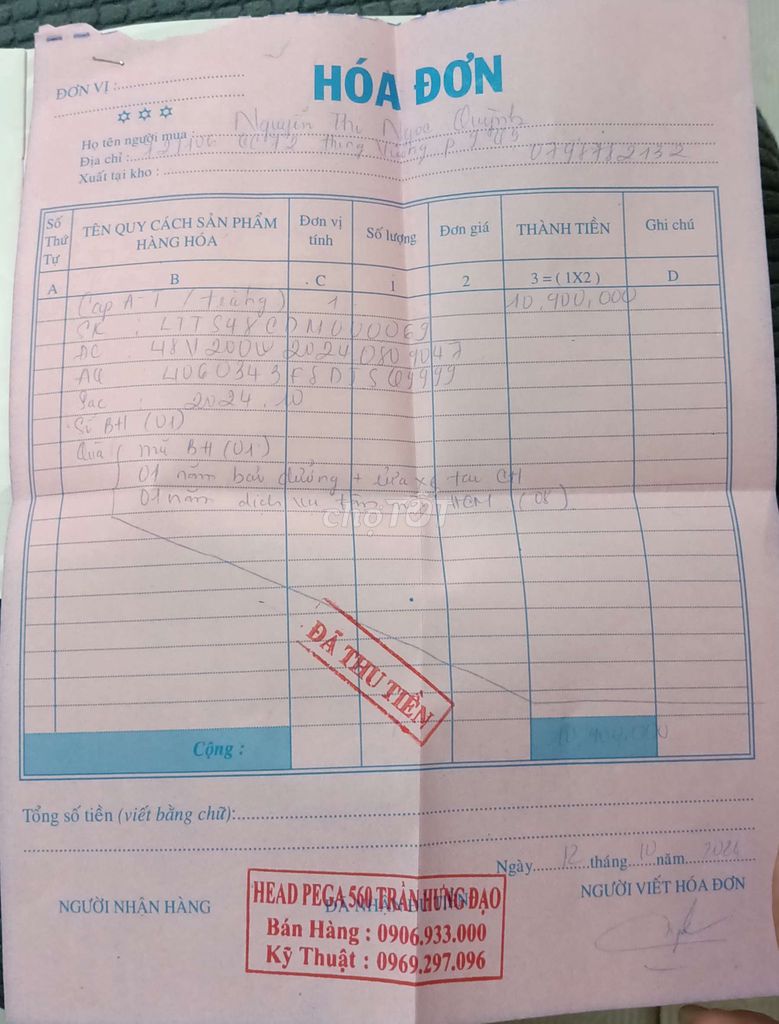 HÓA ĐƠN
ĐƠN VỊ :
Họ tên người mua : Nguyễn Thị Ngọc Quỳnh
Địa chỉ : Hùng Vương P 9 Q5 0798782132
Xuất tại kho :
Số Thứ Tự
TÊN QUY CÁCH SẢN PHẨM HÀNG HÓA
Đơn vị tính
Số lượng
Đơn giá
THÀNH TIỀN
Ghi chú
A B C 1 2 3 = ( 1X2 ) D
Cap A-T (trắng) 1 10,900,000
SK : LTTS48CDM0000069
AC : 48V200W20240809047
AQ 4060343F8DTS69999
Sạc : 2024.10
Sổ BH (01)
Quà mũ BH (01)
01 năm bảo dưỡng + sửa xe tại CH
01 năm dịch vụ tận HCM (08)
chợTỐT
ĐÃ THU TIỀN
Cộng : 10,900,000
Tổng số tiền (viết bằng chữ):
Ngày 12 tháng 10 năm 2024
NGƯỜI NHẬN HÀNG
NGƯỜI VIẾT HÓA ĐƠN
HEAD PEGA 560 TRẦN HƯNG ĐẠO
Bán Hàng : 0906.933.000
Kỹ Thuật : 0969.297.096